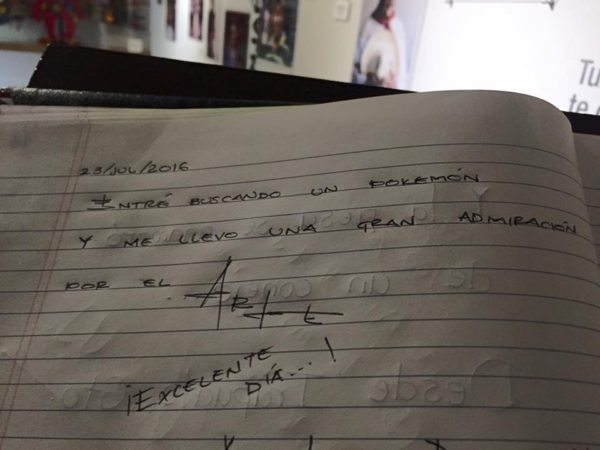 Tu
te
23/JUL/2016
ENTRÉ BUSCANDO UN POKEMÓN
Y ME LLEVO UNA GRAN ADMIRACIÓN
POR EL ARtE
¡EXCELENTE
DÍA...!